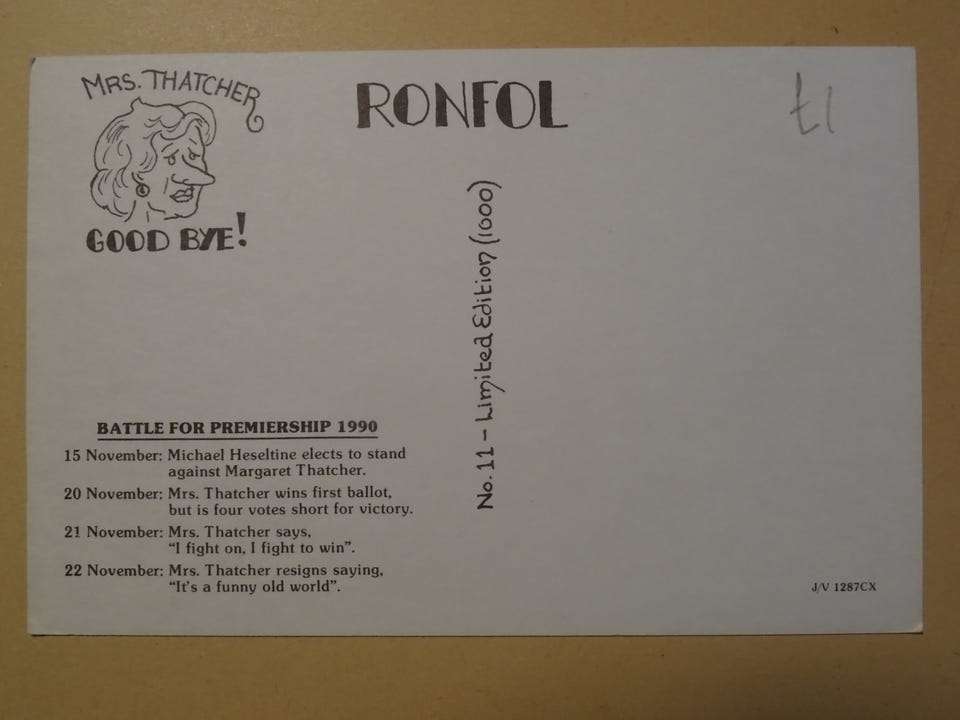 MRS. THATCHER
GOOD BYE!
RONFOL
£1
No. 11 - Limited Edition (1000)
BATTLE FOR PREMIERSHIP 1990
15 November: Michael Heseltine elects to stand
against Margaret Thatcher.
20 November: Mrs. Thatcher wins first ballot,
but is four votes short for victory.
21 November: Mrs. Thatcher says,
“I fight on, I fight to win”.
22 November: Mrs. Thatcher resigns saying,
“It’s a funny old world”.
J/V 1287CX